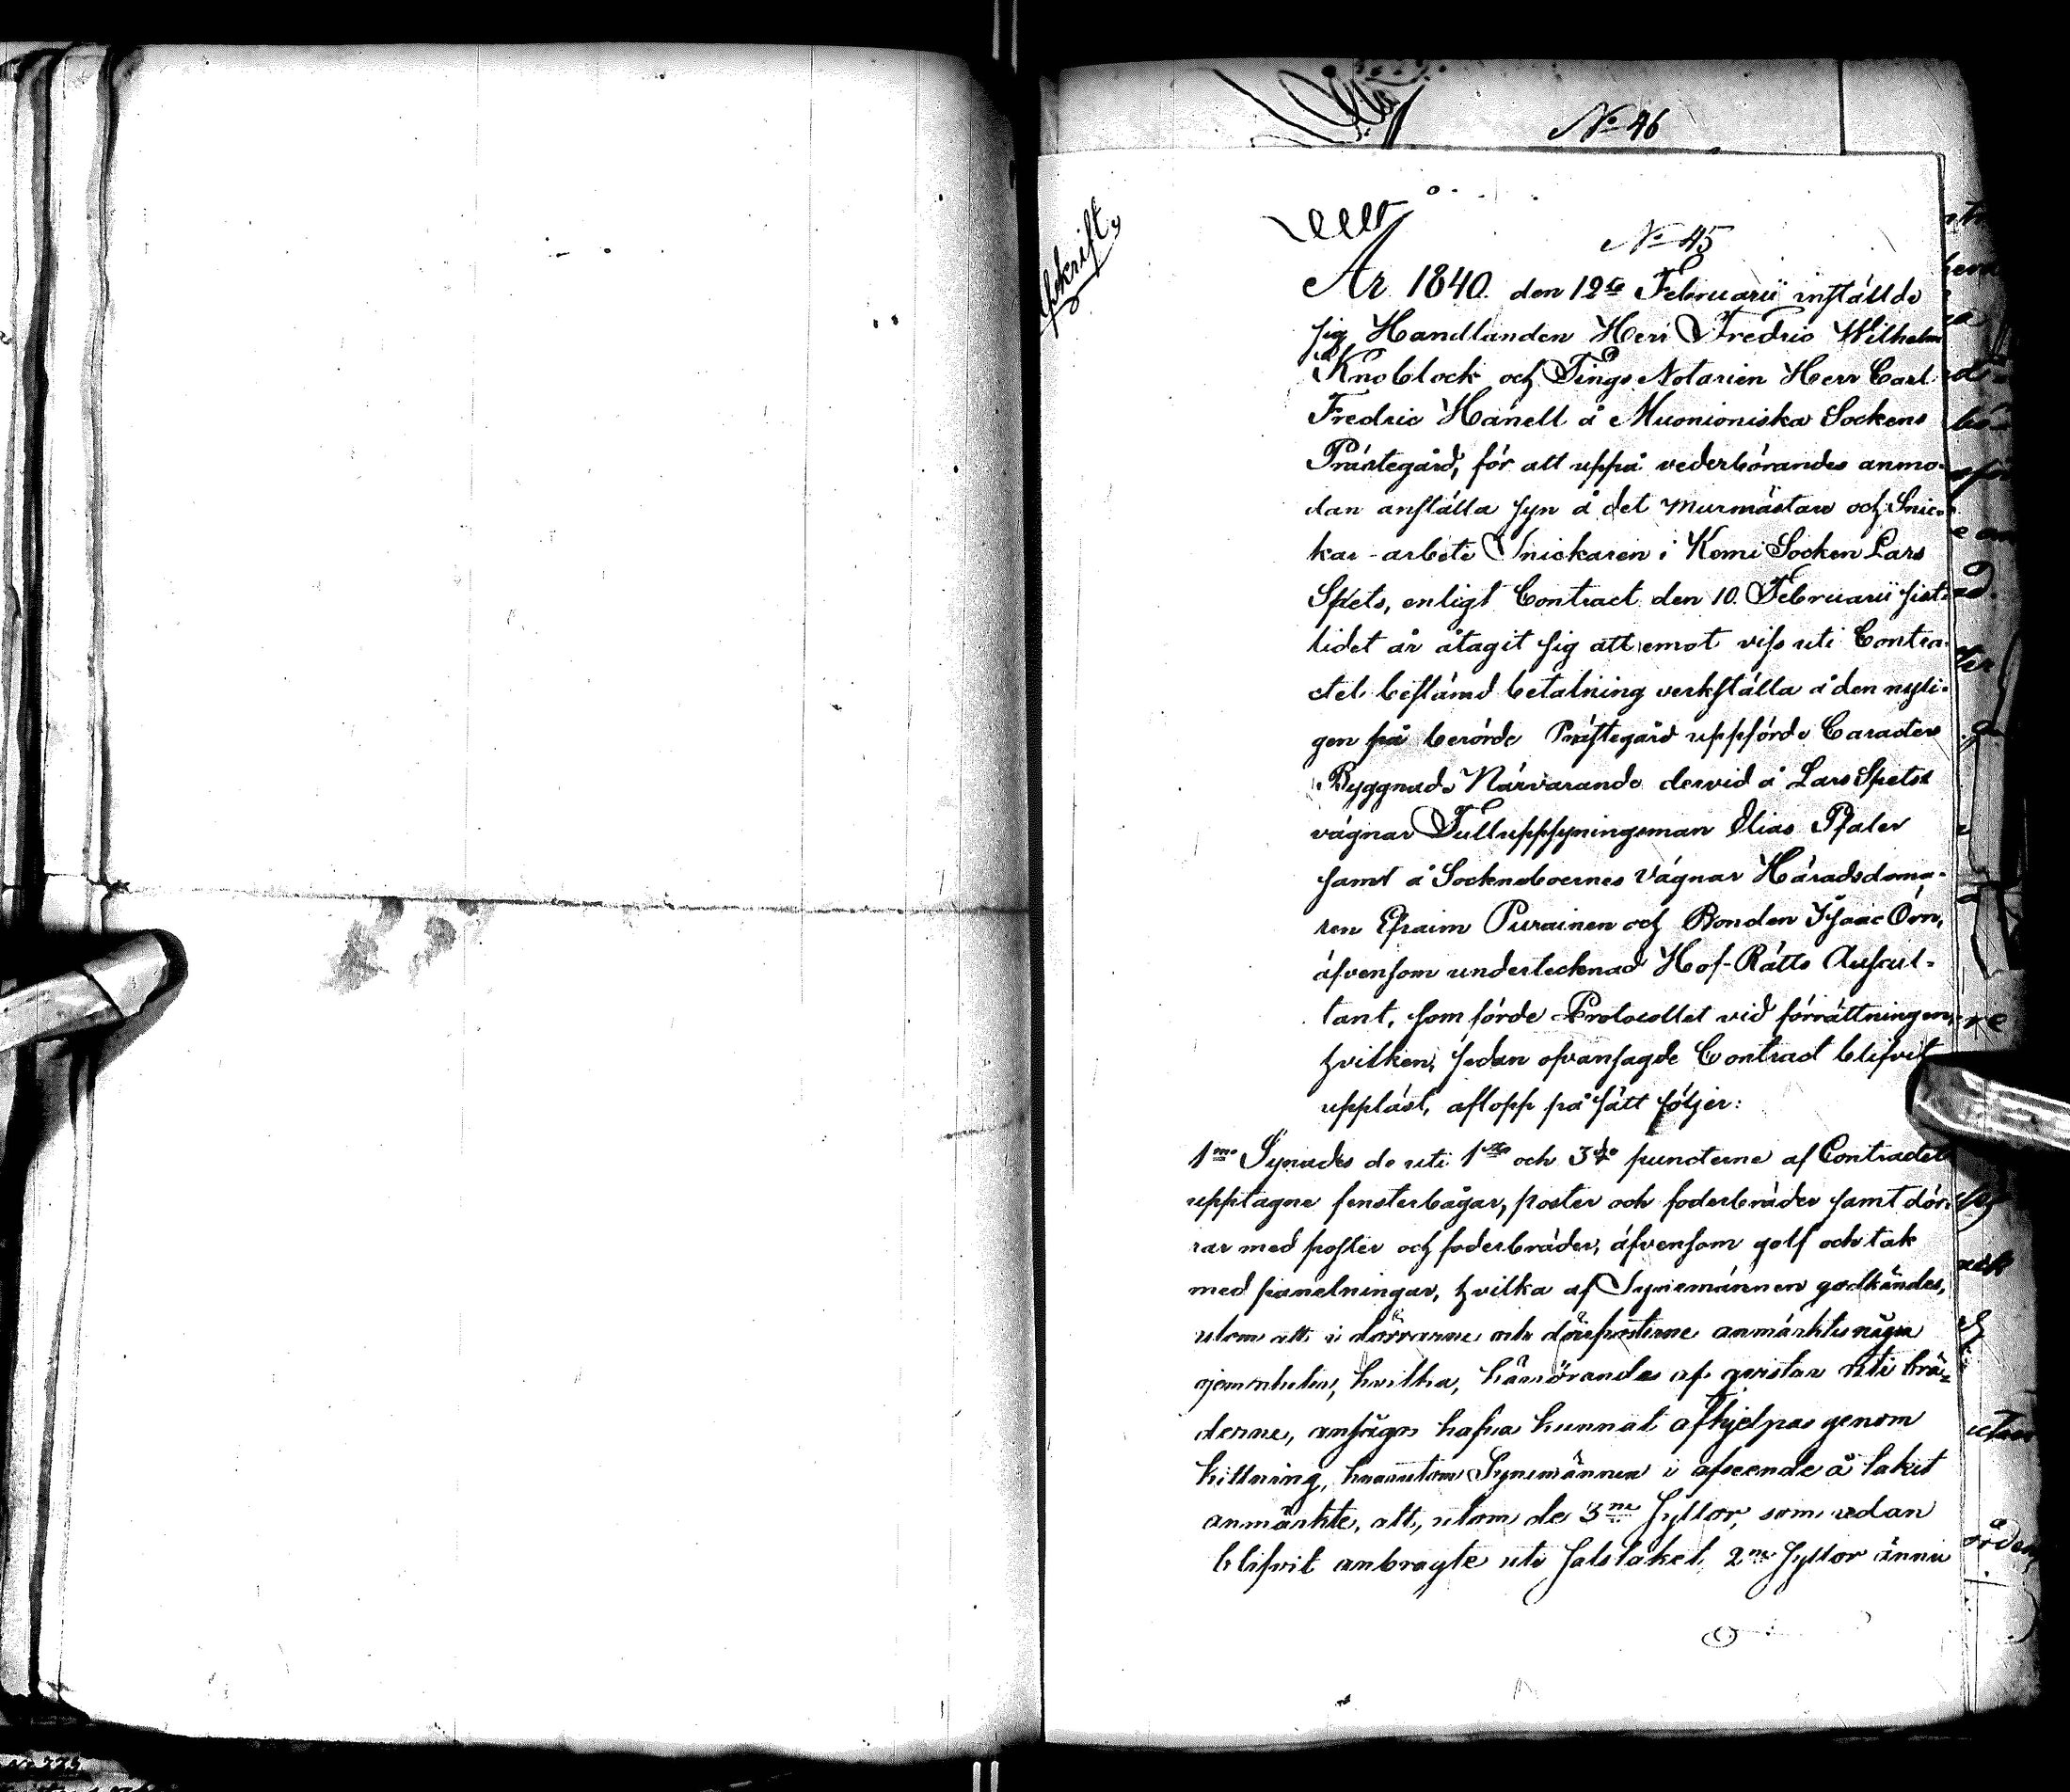 No 46
Afskrift,
No 45
År 1840. den 12te Februarii instälde
sig Handlanden Herr Fredric Wilhelm
Knoblock och Tings Notarien Herr Carl
Fredric Hanell å Muonioniska Sockens
Prästegård, för att uppå vederbörandes anmo-
dan anställa syn å det Murmästare och Snic-
kar-arbete Snickaren i Kemi Socken Lars
Spets, enligt Contract den 10. Februarii sist-
lidet år åtagit sig att emot viss uti Contra-
ctet bestämd betalning verkställa å den nyli-
gen på berörde Prästegård uppförde Caracters
Byggnad. Närvarande dervid å Lars Spets's
vägnar Tulluppsyningsman Elias Pfaler
samt å Socknaboernes Vägnar Häradsdoma-
ren Efraim Purainen och Bonden Isaac Örn,
äfvensom undertecknad Hof-Rätts Auscul-
tant, som förde Protocollet vid förrättningen,
hvilken, sedan ofvansagde Contract blifvit
uppläst, aflopp på sätt följer:
1mo Synades de uti 1sta och 3dje puncterne af Contractet
upptagne fensterbågar, poster och foderbräder samt dör-
rar med poster och foderbräder, äfvensom golf och tak
med panelningar, hvilka af Synemännen godkändes,
utom att i dörrarne och dörrposterne anmärktes några
remnheter, hvilka, härrörande af qvistar uti brä-
derne, ansågos hafva kunnat afhjelpas genom
kittning, hvarutom Synemännen i afseende å taket
anmärkte, att, utom de 3ne Hyllor, som redan
blifvit anbragte uti Salstaket, 2ne Hyllor ännu